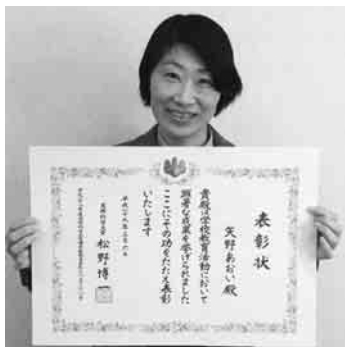 表彰状
矢野あおい殿
貴殿は学校教育活動において
顕著な成果を挙げられました
ここにその功をたたえ表彰
いたします
文部科学大臣 松野博一